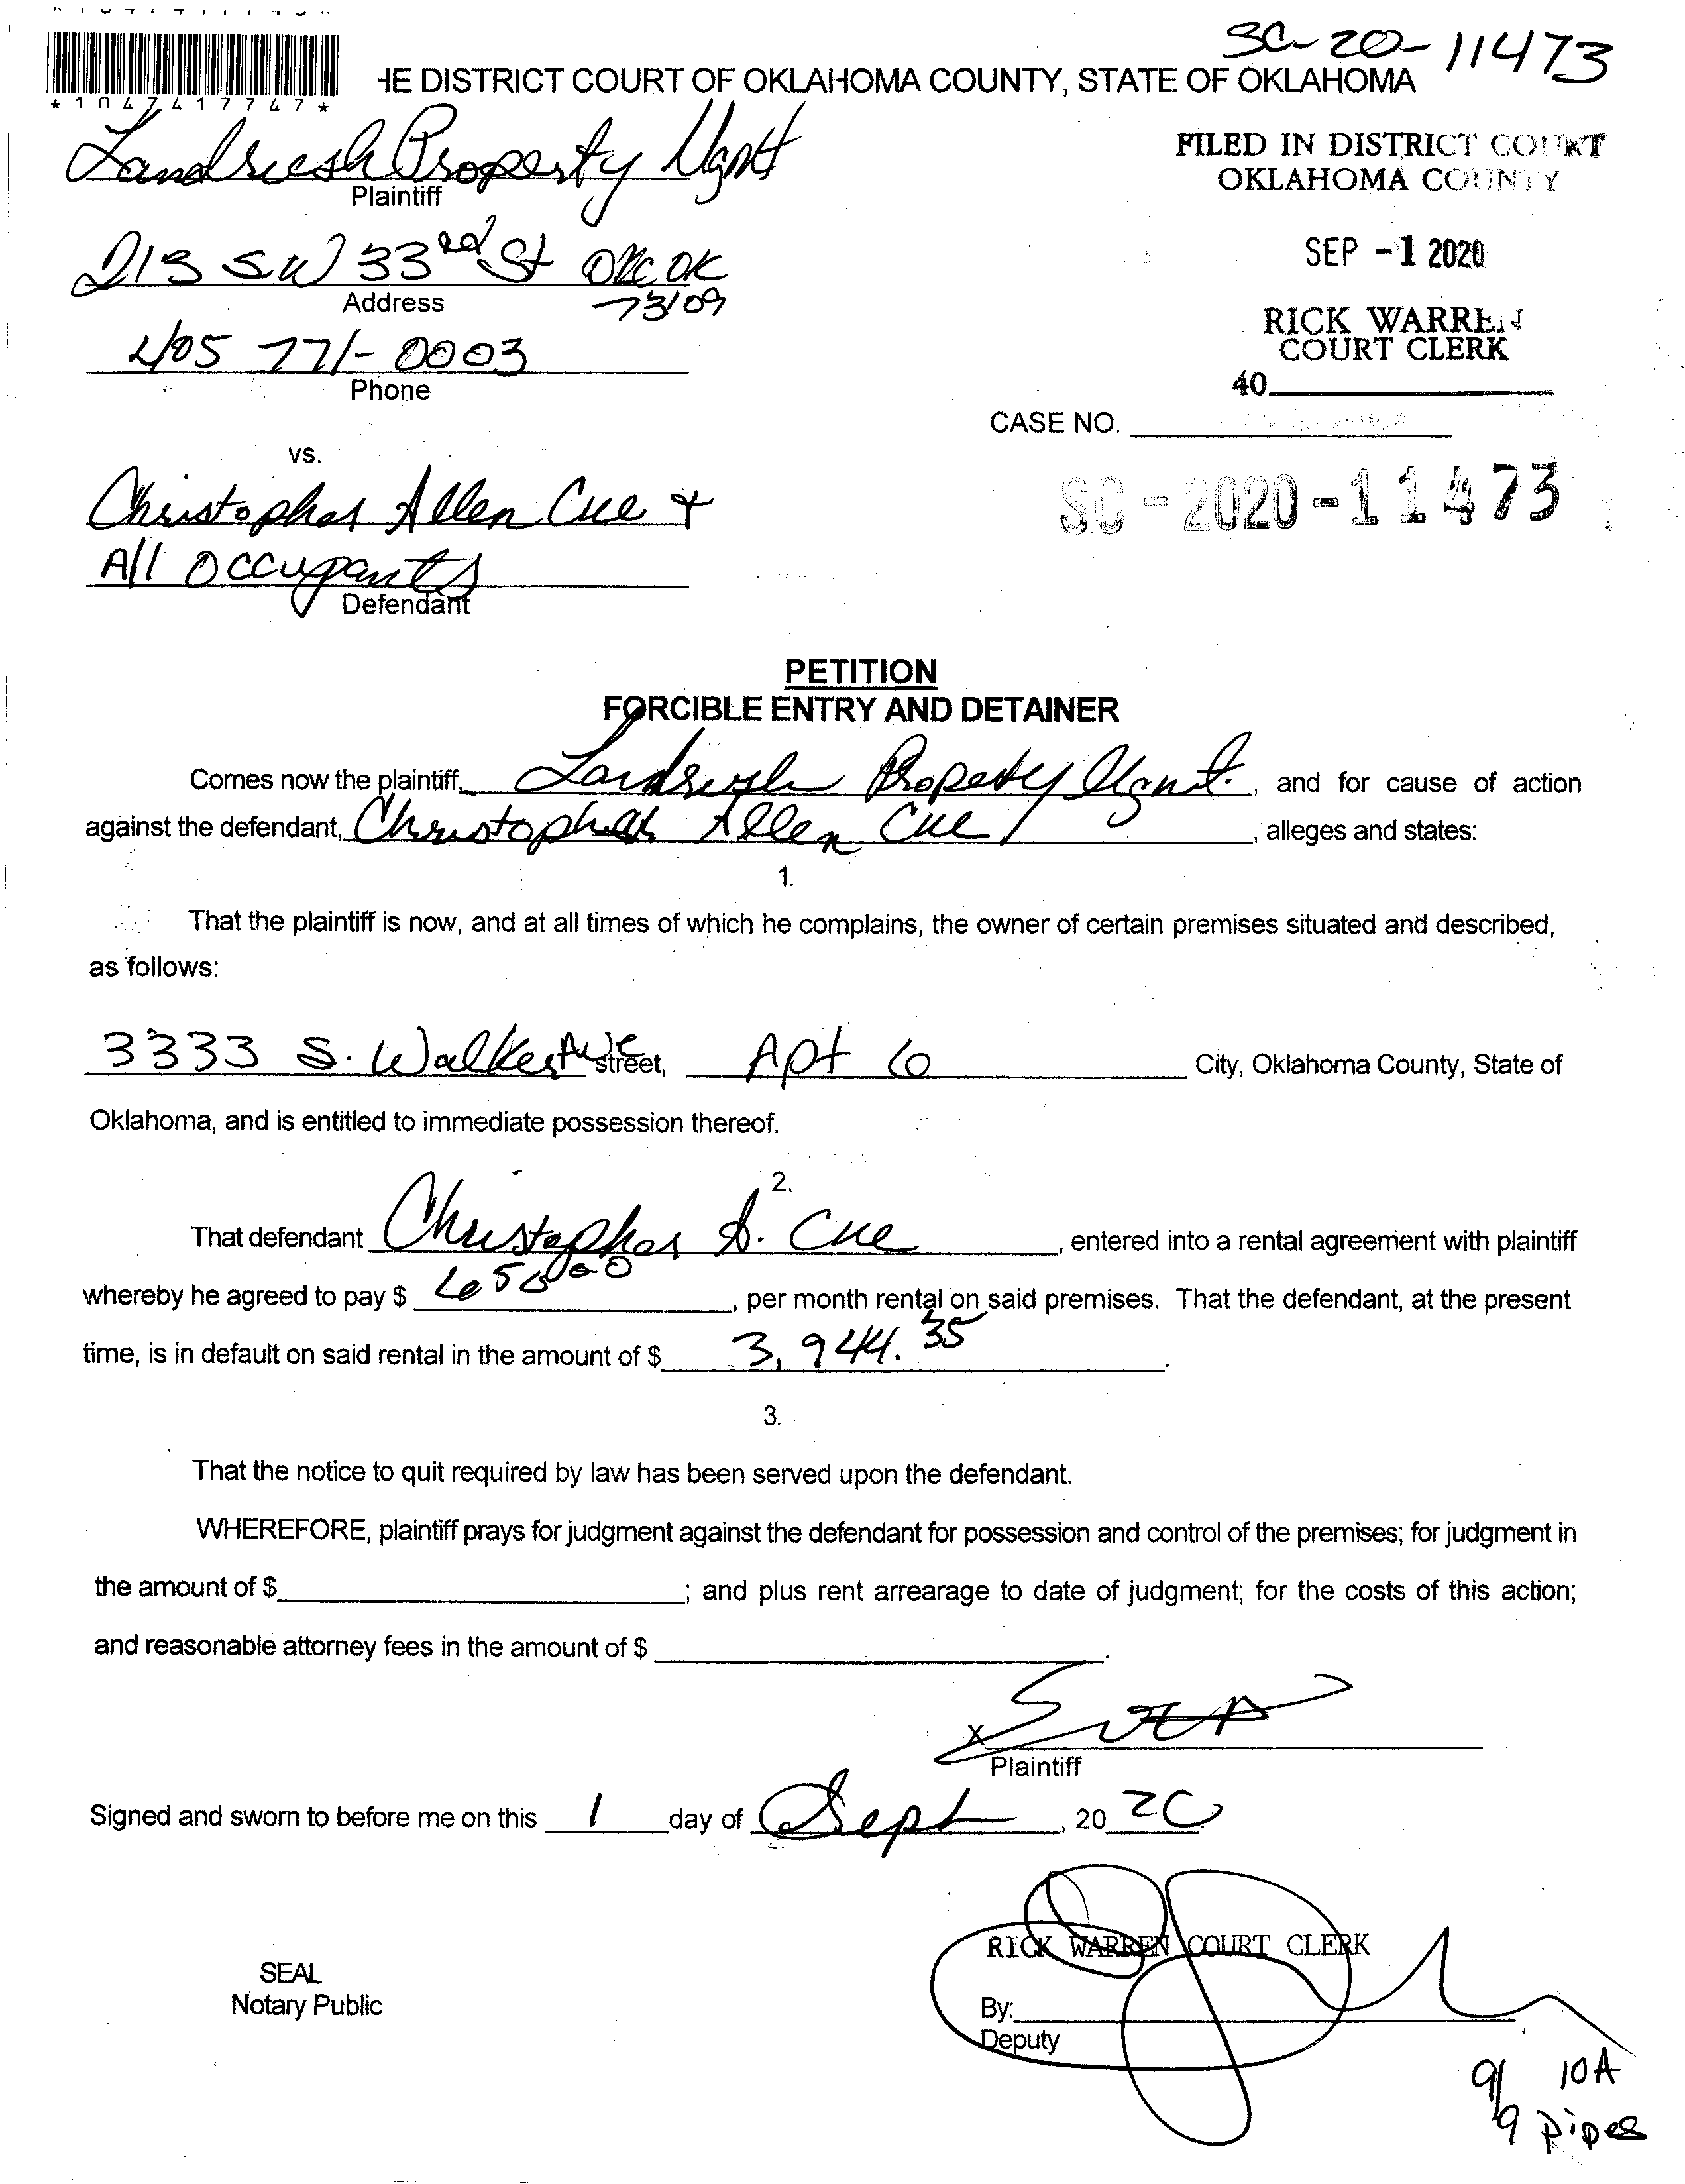 SC-20-11473
*1047417747*
HE DISTRICT COURT OF OKLAHOMA COUNTY, STATE OF OKLAHOMA
Landrush Property Mgmt
Plaintiff
FILED IN DISTRICT COURT
OKLAHOMA COUNTY
213 SW 33rd St OKC OK
Address
73109
SEP -1 2020
405 771-0003
Phone
RICK WARREN
COURT CLERK
40
CASE NO.
vs.
SC-2020-11473
Christopher Allen Cue &
All Occupants
Defendant
PETITION
FORCIBLE ENTRY AND DETAINER
Comes now the plaintiff, Landrush Property Mgmt., and for cause of action
against the defendant, Christopher Allen Cue, alleges and states:
1.
That the plaintiff is now, and at all times of which he complains, the owner of certain premises situated and described,
as follows:
3333 S. Walker Ave Street, Apt 6 City, Oklahoma County, State of
Oklahoma, and is entitled to immediate possession thereof.
2.
That defendant Christopher A. Cue, entered into a rental agreement with plaintiff
whereby he agreed to pay $ 650.00, per month rental on said premises. That the defendant, at the present
time, is in default on said rental in the amount of $ 3,944.35.
3.
That the notice to quit required by law has been served upon the defendant.
WHEREFORE, plaintiff prays for judgment against the defendant for possession and control of the premises; for judgment in
the amount of $ ; and plus rent arrearage to date of judgment; for the costs of this action;
and reasonable attorney fees in the amount of $ .
X
Plaintiff
Signed and sworn to before me on this 1 day of Sept, 20 20.
RICK WARREN COURT CLERK
SEAL
Notary Public
By:
Deputy
9/9 10A
Pipes